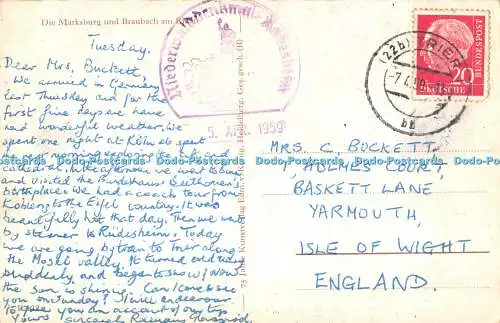 Die Marksburg und Braubach am
Tuesday.
Dear Mrs. Buckett,
We arrived in Germany
last Thursday and for the
first five days we have
had wonderful weather. We
spent one night at Köln & spent
the next morning
cathedral. In the afternoon we went to Bonn
and visited the Bundeshaus & Beethoven's
birthplace. We had a coach tour from
Koblenz to the Eifel country. It was
beautifully hot that day. Then we went
by steamer to Rüdesheim. Today
we are going by train to Trier along
the Mosel valley. It turned cold
suddenly and began to snow! Now
the sun is shining. Can I come & see
you on Sunday? I will endeavour
to give you an account of my trip
Yours sincerely
Niederwalddenkmal Rüdesheim
5. APR. 1959
75 Jahre Kunstverlag Edm. Heidelberg. Ges. gesch.
(22b) TRIER
-7.
bb
DEUTSCHE BUNDESPOST
20
MRS. C. BUCKETT,
HOLMES COURT,
BASKETT LANE,
YARMOUTH,
ISLE OF WIGHT
ENGLAND.
Dodo Postcards Dodo Postcards Dodo Postcards Dodo Postcards